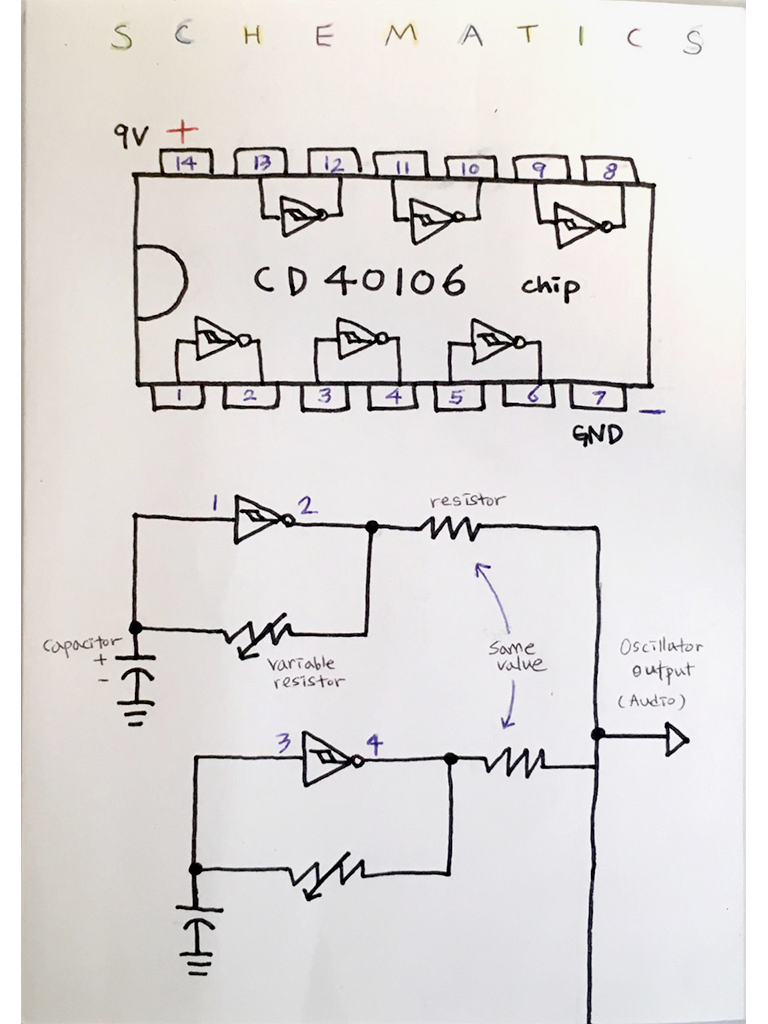 SCHEMATICS
9V +
14 13 12 11 10 9 8
CD40106 chip
1 2 3 4 5 6 7 -
GND
1 2
resistor
capacitor
+
-
variable
resistor
same
value
Oscillator
output
(Audio)
3 4